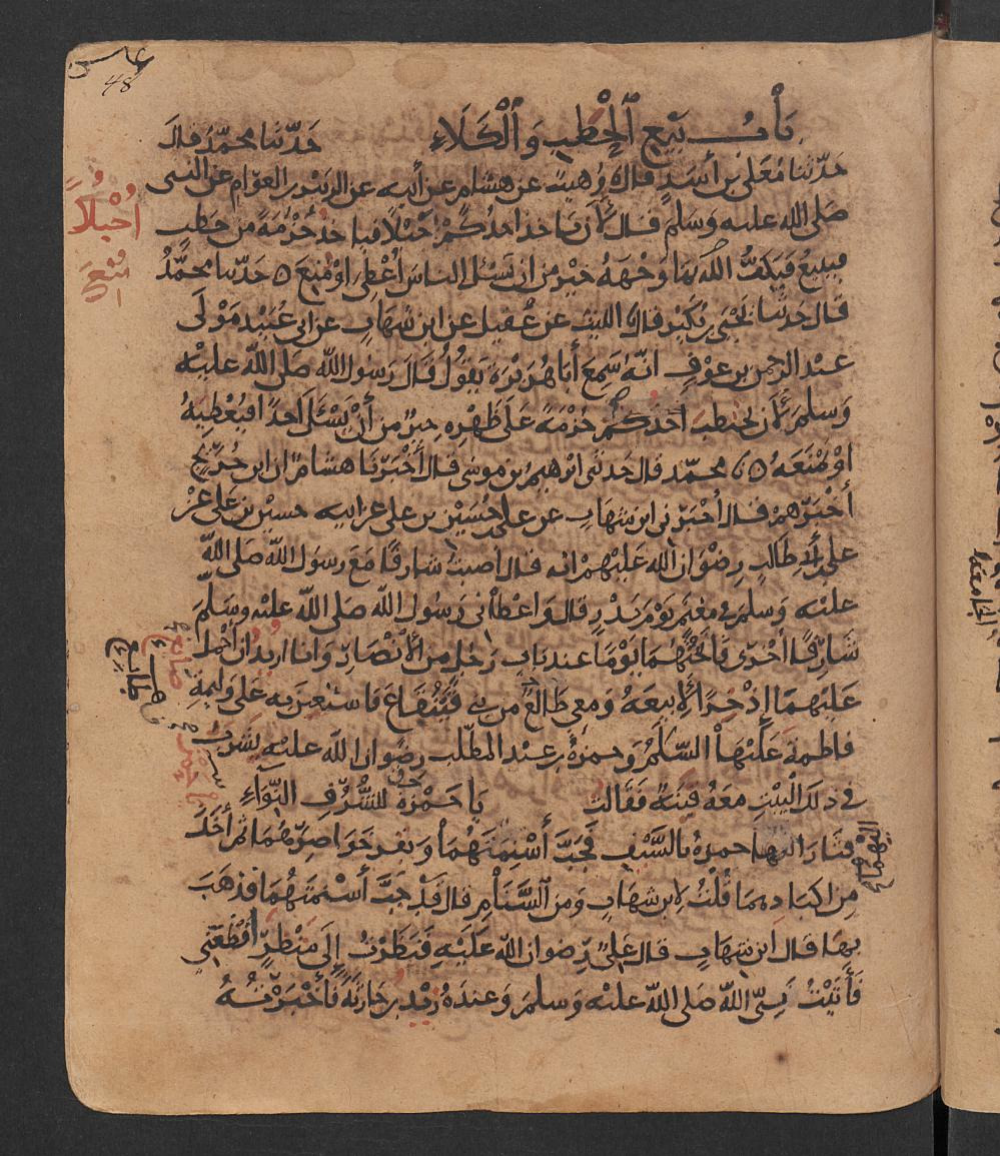 48
بَابُ بَيْعِ الْحَطَبِ وَالْكَلَاءِ حَدّثنا محمّدُ قالَ
حَدّثنا مُعَلَّى بن أَسَدٍ قال وُهَيْبٌ عن هشامٍ عن أبيه عن الزبير بن العوّام عن النبى
صَلى الله عليه وَسَلم قال لَأن يَاخذ احدُكُمْ حَبْلًا فياخذ حُزْمَةً من حَطبٍ
فيبيعُ فَيَكفُّ اللّهُ بهَا وَجْهَهُ خيْر من ان يَسْئل الناسَ أُعْطِىَ اوْ مُنِعَ ه حَدّثنا محمّدُ
قال حَدثنا يَحْيَى بن بُكَيْرٍ قال الليث عن عُقيل عن ابن شهابٍ عن ابى عُبَيْدٍ مَوْلَى
عَبْد الرحمن بن عوْفٍ انّهُ سَمِعَ أبَا هُرَيْرَة يَقُولُ قَالَ رَسُول اللّه صَلى اللّه عليْه
وَسلمَ لَأن يحتطبَ احَدُكمْ حُزْمَةً عَلَى ظَهْرِهِ خيرٌ من أنْ يَسْئَلَ احَدًا فيُعْطِيَهُ
اوْ يَمْنَعَهُ ه محمّد قال حَدثنى ابْرهيمُ بن موسَى قال أخْبَرَنا هشامٌ ان ابن جُرَيْجٍ
أخْبَرَهمْ قال أخْبَرَنى ابن شهَابٍ عن على بن حُسَيْنِ بن على عن ابيه حسيْن بن على عنْ
على بن أبى طَالبٍ رضْوَان اللّه عَلَيْهمْ انه قال أصبتُ شارفًا مَعَ رسوُل اللّه صَلى اللّه
عليْه وَسلمَ فى مغْنَمٍ يَوْمَ بَدْرٍ قال وَاعْطانى رَسُول اللّه صَلى اللّه عليْه وسَلّمَ
شَارفًا أخْرَى فَانَخْتُهُمَا يَوْمًا عند بَابِ رَجُلٍ مِن الْأنْصَارِ وَانا اريدُ ان أحْملَ
عَلَيْهمَا إذْخرًا لأبيعَهُ وَمعِى طَالعٌ من بنى قَيْنُقَاعَ فَاسْتعينَ به عَلى وَليمَةِ
فاطمةَ عَلَيْهَا السَّلَمُ وَحمزَةُ بن عبْد المطّلب رضوان اللّه عليْه يشرَبُ
فى ذلكَ الْبَيْتِ معَهُ قَيْنَةٌ فَقَالت يَا حَمْزَةُ للشُّرُفِ النِّوَاءِ
فثَارَ اليهما حمزةُ بالسَّيْفِ فَجَبَّ أَسْنِمَتَهُمَا وَبقرَ خَوَاصِرَهُمَا ثم أَخَذَ
مِن اكبَادهِمَا قُلْتُ لابن شهابٍ وَمن السَّنَامِ قال قَدْ جَبَّ أسْنمَتَهُمَا فذهَبَ
بهَا قال ابن شهَابٍ قال عَلىٌّ رضوان اللّه عَلَيْهِ فَنَظَرْتُ إلَى مَنْظرٍ أفْظَعَنِى
فَأَتَيْتُ نَبِىَّ اللّه صَلى اللّه عليْه وَسلمَ وَعندَهُ زيْد بن حَارثَةَ فَأخْبَرْتُهُ
أَحْبُلًا
مُنِعَ
صَائِغٌ
طَالِعٌ
إليْهما